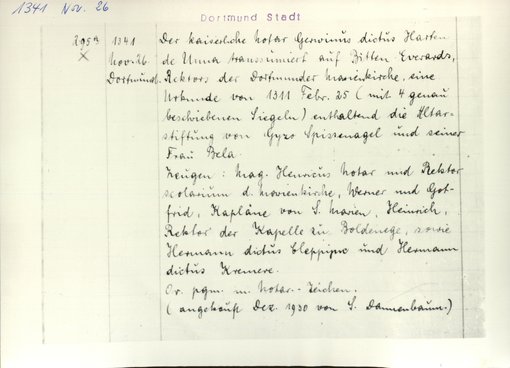 1341 Nov. 26
Dortmund Stadt
295a 1341 Der kaiserliche Notar Gerwinus dictus Harten
Nov. 26. de Unna transsumiert auf Bitten Everards,
Dortmund. Rektors der Dortmunder Marienkirche, eine
Urkunde von 1311 Febr. 25 (mit 4 genau
beschriebenen Siegeln) enthaltend die Altar-
stiftung von Gyzo Spissenagel und seiner
Frau Bela.
Zeugen: Mag. Henricus Notar und Rektor
scolarium d. Marienkirche, Werner und Got-
frid, Kapläne von S. Marien, Heinrich,
Rektor der Kapelle zu Boldenege, sowie
Hermann dictus Cleppinc und Hermann
dictus Kremere.
Or. pgm. m. Notar.-Zeichen.
(angekauft Dez. 1930 von S. Dannenbaum.)